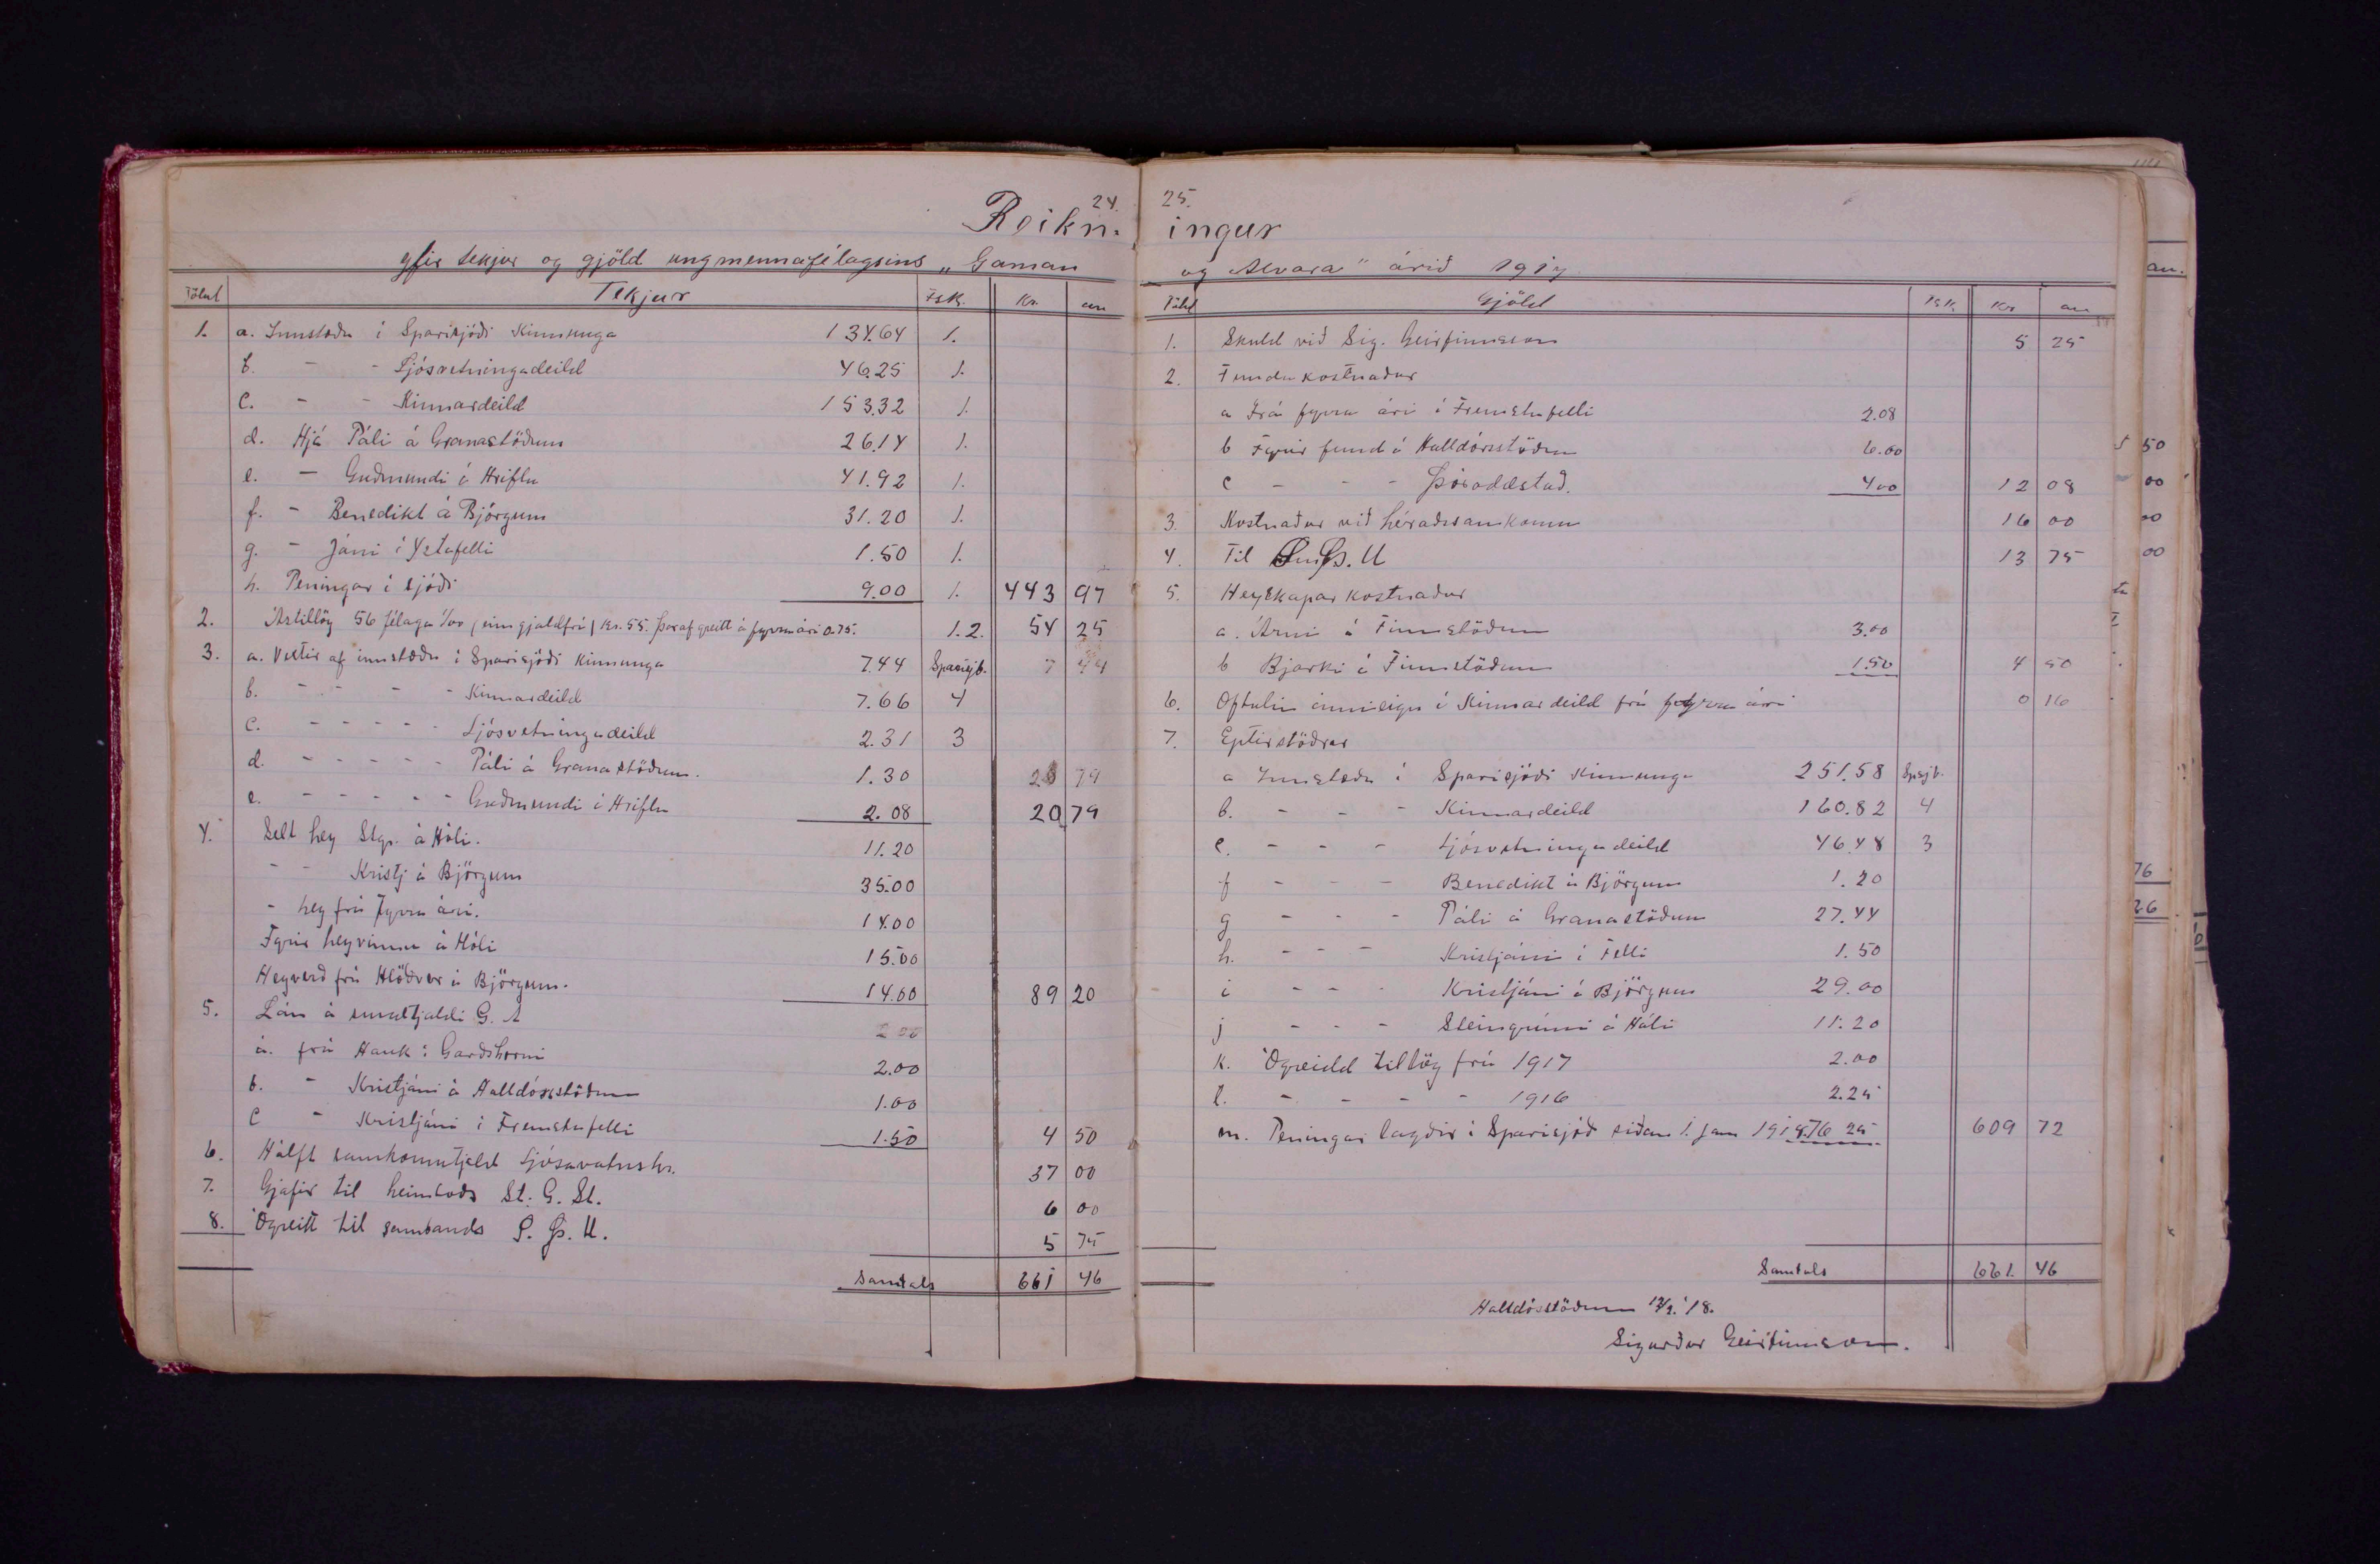 24.
Reikn-
yfir tekjur og gjöld ungmennafélagsins „Gaman
Tölul Tekjur Fsk. Kr. au
1. a. Innstæða í Sparisjóði Kinnunga 134.64 1.
b. - - Ljósvetningadeild 46.25 1.
c. - - Kinnardeild 153.32 1.
d. Hjá Páli á Granastöðum 26.14 1.
e. - Guðmundi í Hriflu 41.92 1.
f. - Benedikt á Björgum 31.20 1.
g. - Jóni í Yztafelli 1.50 1.
h. Peningar í sjóði 9.00 1. 443 97
2. Árstillög 56 félaga 1/00 (einn gjaldfrí) Kr. 55. Þaraf greitt á fyrra ári 0.75. 1.2. 54 25
3. a. Vextir af innstæðu í Sparisjóði Kinnunga 7.44 Sparisjb. 7 44
b. - - - - Kinnardeild 7.66 4
c. - - - - - Ljósvetningadeild 2.31 3
d. - - - - - Páli á Granastöðum. 1.30 20 79
e. - - - - - Guðmundi í Hriflu 2.08 20 79
4. Selt hey Stgr. á Hóli. 11.20
- - Kristj á Björgum 35.00
- hey frá fyrra ári. 14.00
Fyrir heyvinnu á Hóli 15.00
Heyverð frá Hlöðver á Björgum. 14.00 89 20
5. Lán á tjaldi G. A 2 00
a. frá Hauk í Garðshorni 2.00
b. - Kristjáni á Halldórsstöðum 1.00
c - Kristjáni í Fremstafelli 1.50 4 50
6. Hálft samkomutjald Ljósavatnshr. 37 00
7. Gjafir til St. G. St. 6 00
8. Ógreitt til sambands S. Þ. U. 5 75
Samtals 661 46
25.
ingur
og Alvara" árið 1917
Tölul Gjöld Fsk. Kr au
1. Skuld við Sig. Geirfinnsson 5 25
2. Fundakostnaður
a Frá fyrra ári í Fremstafelli 2.08
b Fyrir fund á Halldórsstöðum 6.00
c - - - Þóroddstað. 4.00 12 08
3. Kostnaður við héraðssamkomu 16 00
4. Til S. Þ. U 13 75
5. Heyskapar kostnaður
a. Árni á Finnstöðum 3.00
b Bjarki á Finnstöðum 1.50 4 50
6. Oftalin inneign í Kinnardeild frá fyrra ári 0 16
7. Eptirstöðvar
a Innstæða í Sparisjóði Kinnunga 251.58 Spsjb.
b. - - - Kinnardeild 160.82 4
e. - - - Ljósvetningadeild 46.48 3
f - - - Benedikt á Björgum 1.20
g - - - Páli á Granastöðum 27.44
h. - - - Kristjáni í Felli 1.50
i - - - Kristjáni á Björgum 29.00
j - - - Steingrími á Hóli 11.20
k. Ógreidd tillög frá 1917 2.00
l. - - - - 1916 2.25
m. Peningar lagðir í Sparisjóð síðan 1. jan 1918 76 25 609 72
Samtals 661. 46
Halldórsstöðum 12/2. '18.
Sigurður Geirfinnsson.